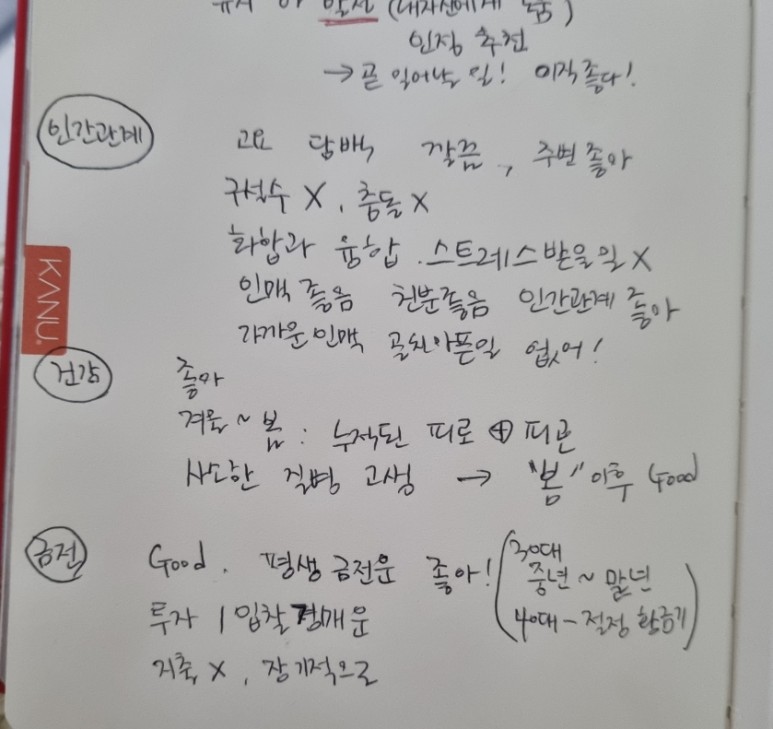 (내자신에게
인정 추천
→ 곧 일어날 일! 이직 좋다!
인간관계
고요 담백 깔끔, 주변 좋아
구설수 X, 충돌 X
화합과 융합. 스트레스 받을 일 X
인맥 좋음 천분좋음 인간관계 좋아
가까운 인맥 골치아픈일 없어!
KANU
건강
좋아
겨울 ~ 봄 : 누적된 피로 ⊕ 피곤
사소한 질병 고생 → "봄" 이후 Good
금전
Good. 평생 금전운 좋아!
(30대
중년 ~ 말년
40대 - 절정 황금기)
투자 / 입찰 경매운
저축 X, 장기적으로